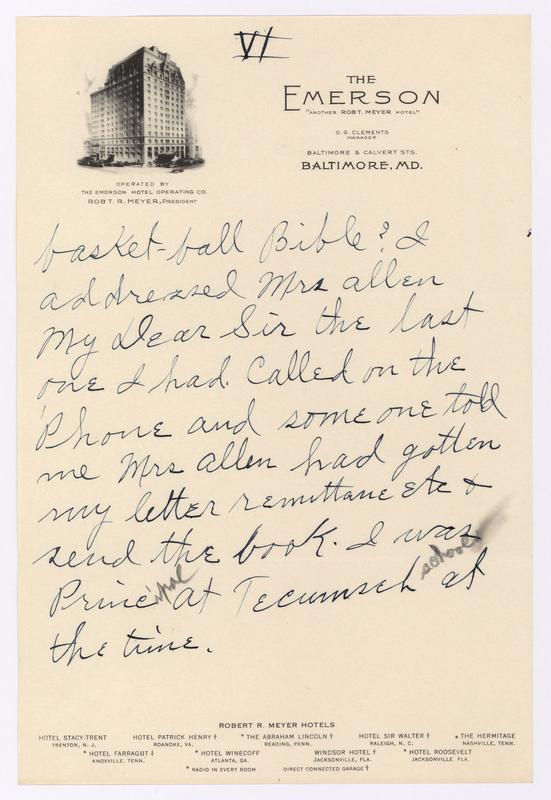 VI
THE
EMERSON
"ANOTHER ROBT. MEYER HOTEL"
O. G. CLEMENTS
MANAGER
BALTIMORE & CALVERT STS.
BALTIMORE, MD.
OPERATED BY
THE EMERSON HOTEL OPERATING CO.
ROBT. R. MEYER, PRESIDENT
basket-ball Bible? I
addressed Mrs allen
My Dear Sir the last
one I had. Called on the
'Phone and some one told
me Mrs allen had gotten
my letter remittane etc &
send the book. I was
Principal at Tecumseh school at
the time.
ROBERT R. MEYER HOTELS
HOTEL STACY-TRENT HOTEL PATRICK HENRY † * THE ABRAHAM LINCOLN † HOTEL SIR WALTER † * THE HERMITAGE
TRENTON, N. J. ROANOKE, VA. READING, PENN. RALEIGH, N. C. NASHVILLE, TENN.
* HOTEL FARRAGUT † * HOTEL WINECOFF WINDSOR HOTEL † * HOTEL ROOSEVELT
KNOXVILLE, TENN. ATLANTA, GA. JACKSONVILLE, FLA. JACKSONVILLE, FLA.
* RADIO IN EVERY ROOM DIRECT CONNECTED GARAGE †